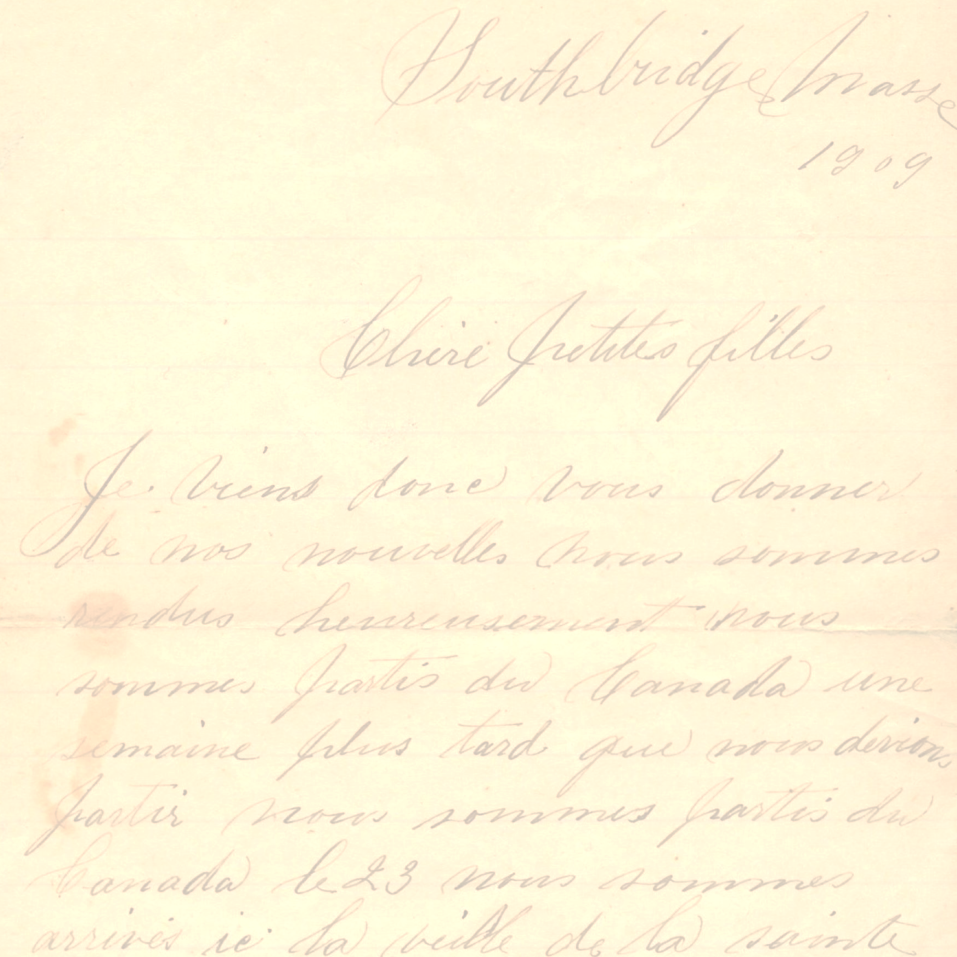 Southbridge Masse
1909
Chère petites filles
Je viens donc vous donner
de nos nouvelles nous sommes
rendus heureusement nous
sommes partis du Canada une
semaine plus tard que nous devions
partir nous sommes partis du
Canada le 23 nous sommes
arrivés ici la veille de la sainte